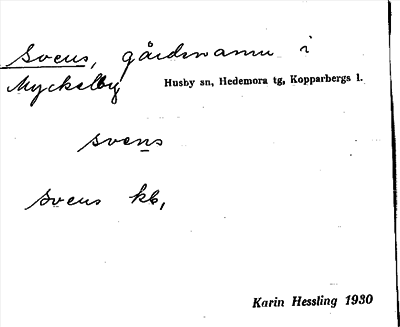 Svens, gårdsnamn i
Myckelby Husby sn, Hedemora tg, Kopparbergs l.
svens
svens kb,
Karin Hessling 1930